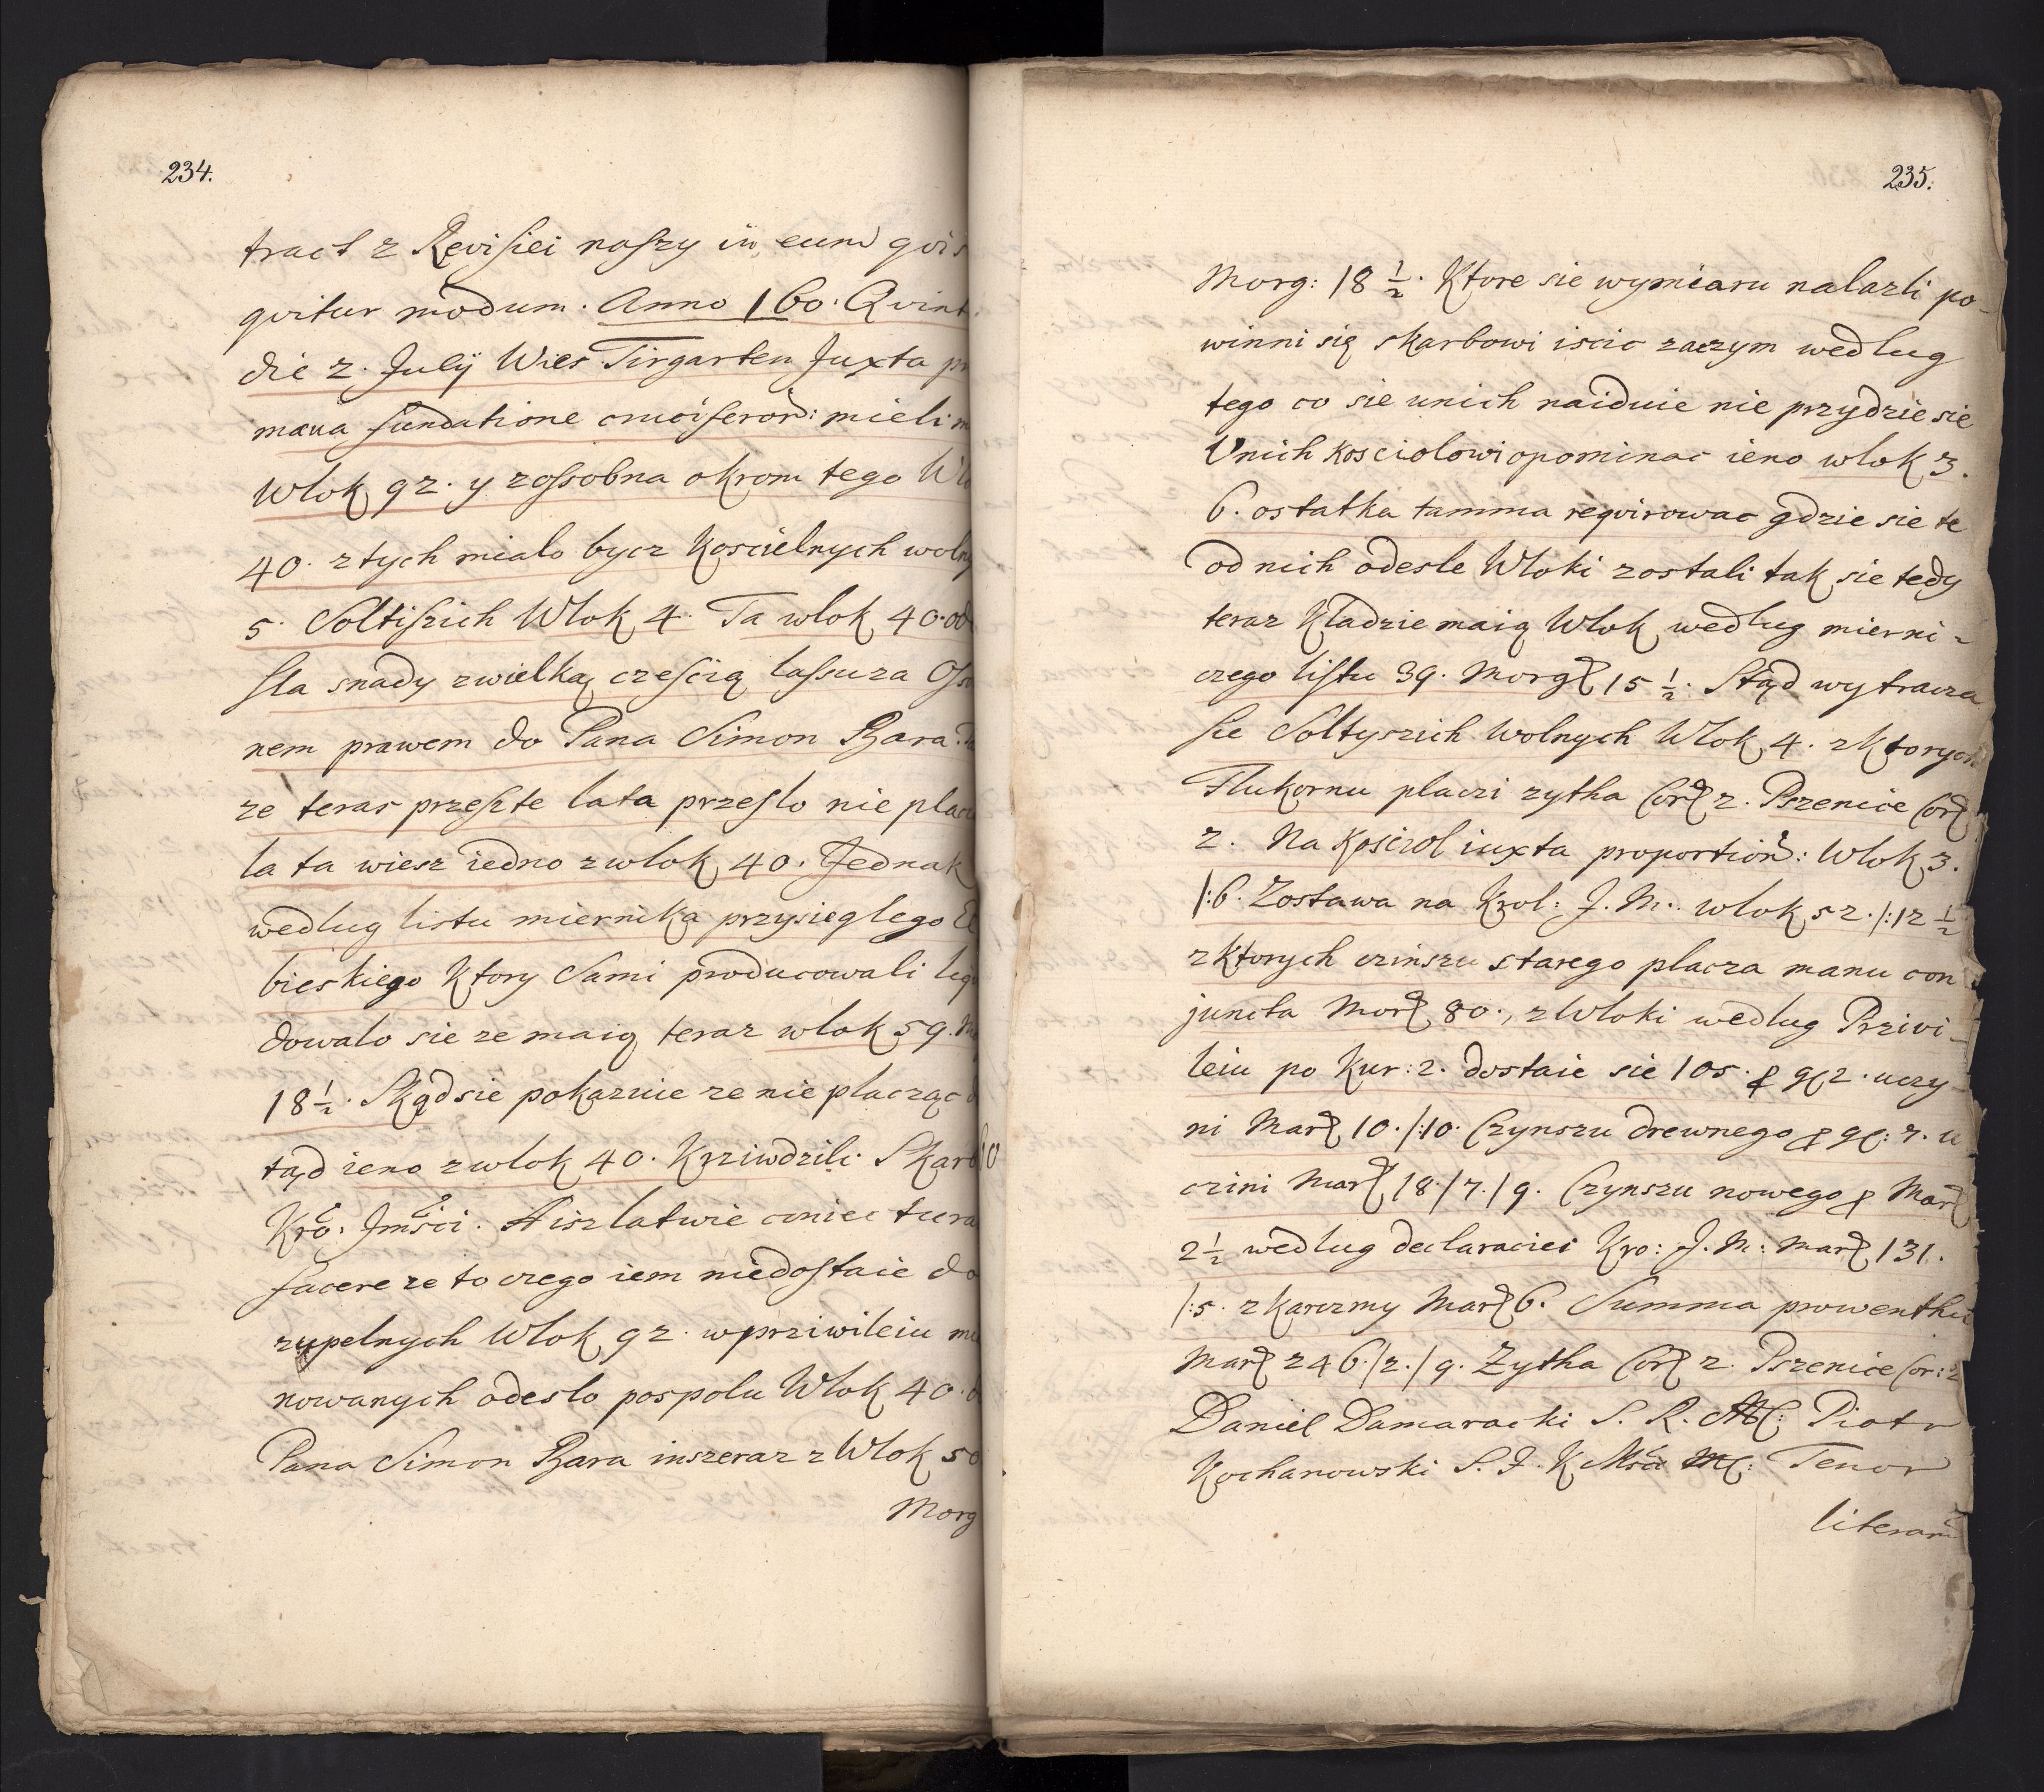 234.
tract z Rewisiei naszy in eum qvis
qvitur modum. Anno 160. Qvint
die 2. Julÿ Wies Tirgarten Juxta pr
maua fundatione cruciferor: mieli m
Wlok 92. y zossobna okrom tego Wlo
40. z tych mialo bycz Koscielnych wolny
5. Soltiszich Wlok 4. Ta wlok 40. od
sla snady z wielką czescią lassu za Oso
nem prawem do Pana Simon Bara.
ze teras przeszte lata przeslo nie placi
la ta wiesz iedno z wlok 40. Jednak
wedlug listu miernika przysieglego El
bieskiego Ktory Sami producowali leq
dowalo sie ze maią teraz wlok 59. M
18 1/2. Skąd sie pokazuie ze nie placząc d
tąd ieno z wlok 40. Krziwdzili Skarb
Kro: Jmsci. A isz latwie coniectura
facere ze to czego iem niedostaie do
zupelnych Wlok 92. w prziwileiu mia
nowanych odeslo pospolu Wlok 40. d
Pana Simon Bara inszeraz z Wlok 50
Morg
235.
Morg: 18 1/2. Ktore sie wymiaru nalazli po-
winni się skarbowi iscic zaczym wedlug
tego co sie unich naiduie nie przydzie sie
Vnich kosciolowi opominac ieno wlok 3.
6. ostatka tamma reqvirowac gdzie sie te
od nich odesle Wloki zostali tak sie tedy
teraz Kladzie maią Wlok wedlug mierni-
czego listu 39. Morg 15 1/2. Stąd wytracza
sie Soltyszich Wolnych Wlok 4. z ktorych
Flukornu placzi zytha Cor 2. Pszenice Cor
2. Na Kosciol iuxta proportion: Wlok 3.
/:6. Zostawa na Krol: J. M. wlok 52. /:12 1/2
z ktorych czinszu starego placza manu con
juncta Mar 80., z Wloki wedlug Prziwi-
leiu po Kur: 2. dostaie sie 105. p gl 2. uczy
ni Mar 10. /:10. Czynszu drewnego p gl: 7. u
czini Mar 18. /7. /9. Czynszu nowego p Mar
2 1/2 wedlug declaraciei Kro: J. M: mar 131.
/:5. z karczmy Mar 6. Summa prowenthu
Mar 246. /2. /9. Zytha Cor 2. Pszenice Cor: 2
Daniel Damaracki S. R. M: Piotr
Kochanowski S. J. K Msci M: Tenor
literarum